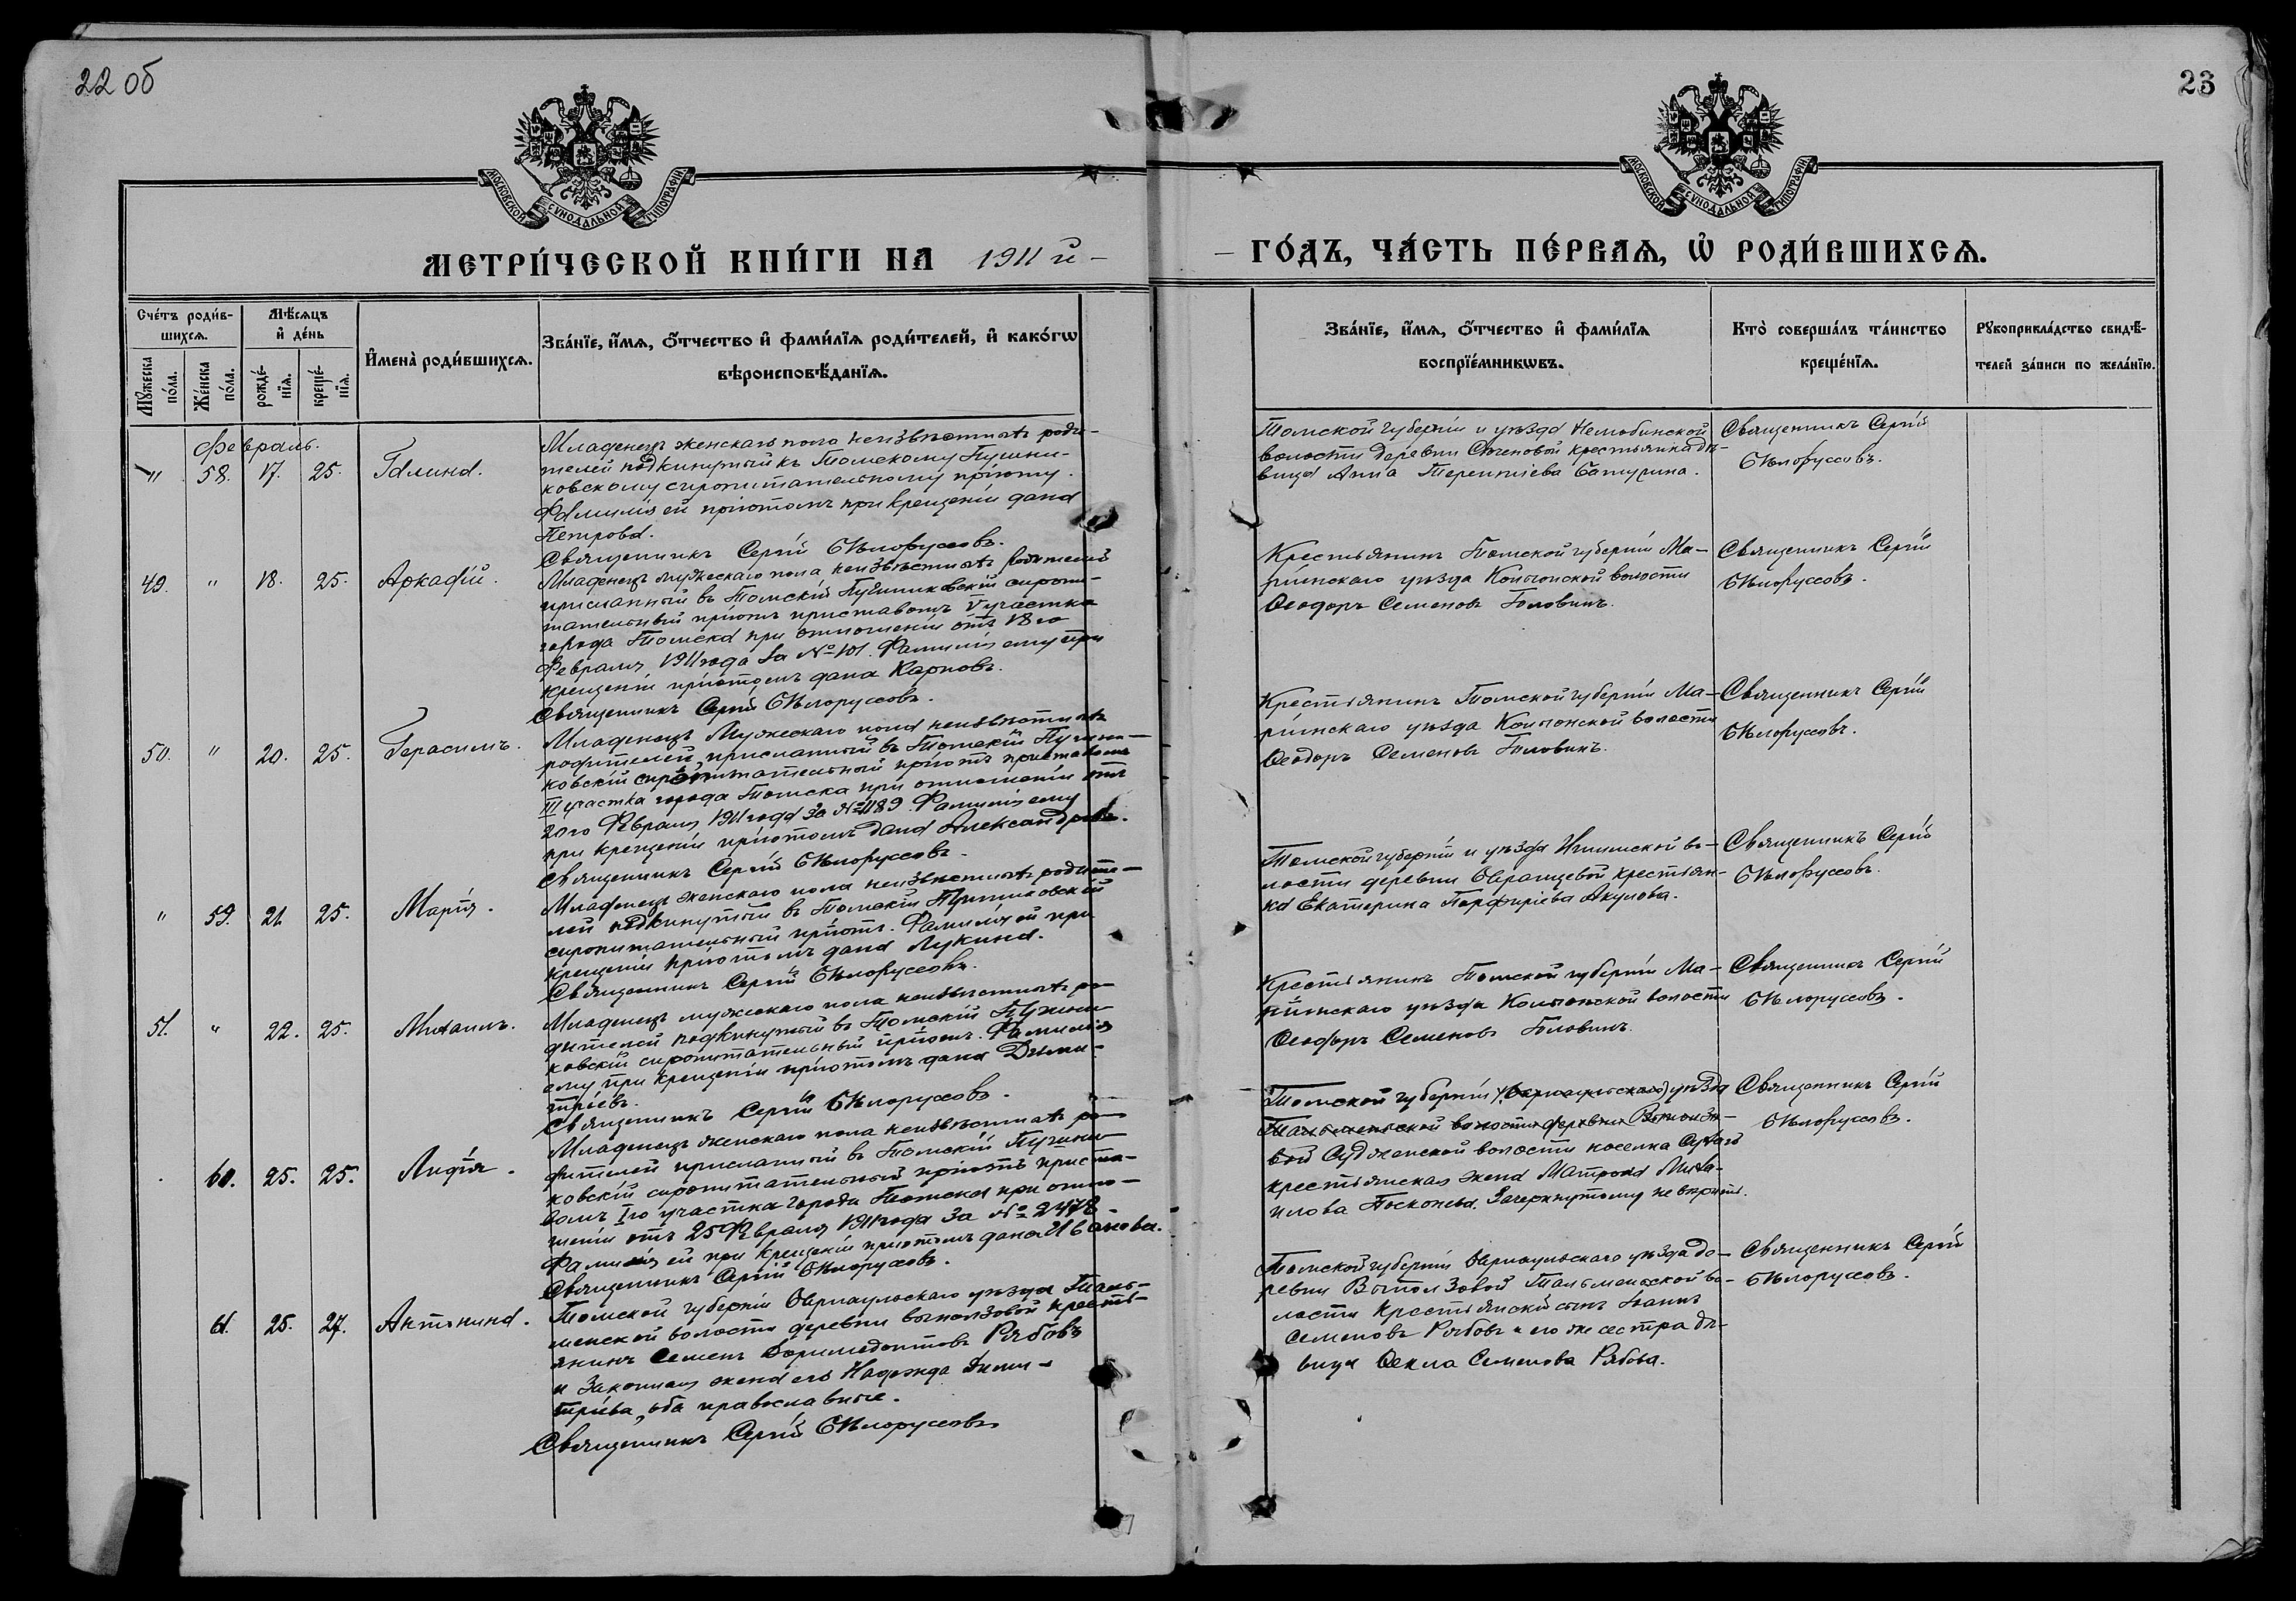 22 об
23
МОСКОВСКОЙ СѴНОДАЛЬНОЙ ТИПОГРАФІИ
МОСКОВСКОЙ СѴНОДАЛЬНОЙ ТИПОГРАФІИ
МЕТРИ́ЧЕСКОЙ КНИ́ГИ НА 1911 й
ГО́ДЪ, ЧА́СТЬ ПЕ́РВАѦ, Ѡ҆ РОДИ́ВШИХСѦ.
Сче́тъ роди́в-
шихсѧ.
Мꙋжеска по́ла.
Же́нска по́ла.
Мѣ́сяцъ
и҆ де́нь
рожде́-
нїѧ.
креще́-
нїѧ.
И҆мена̀ роди́вшихсѧ.
Зва́нїе, и҆́мѧ, ѻ҆́тчество и҆ фами́лїѧ роди́телей, и҆ како́гѡ
вѣроисповѣ́данїѧ.
Зва́нїе, и҆́мѧ, ѻ҆́тчество и҆ фами́лїѧ
воспрїе́мникѡвъ.
Кто̀ соверша́лъ та́инство
креще́нїѧ.
Рꙋкоприкла́дство свидѣ́-
телей за́писи по жела́нїю.
Февраль.
" 58. 17. 25. Галина.
Младенецъ женскаго пола неизвѣстныхъ роди-
телей подкинутый къ Томскому Пушни-
ковскому сиропитательному пріюту.
Фамилія ей пріютомъ при крещеніи дана
Петрова.
Священникъ Сергій Бѣлоруссовъ.
Томской губерніи и уѣзда Нелюбинской
волости деревни крестьянка дѣ-
вица Анна Терентіева Батурина.
Священникъ Сергій
Бѣлоруссовъ.
49. " 18. 25. Аркадій.
Младенецъ мужескаго пола неизвѣстныхъ родителей
присланный въ Томскій Пушниковскій сиропи-
тательный пріютъ приставомъ V участка
города Томска при отношеніи отъ 18го
Февраля 1911 года за № 101. Фамилія ему при
крещеніи пріютомъ дана Карповъ.
Священникъ Сергій Бѣлоруссовъ.
Крестьянинъ Томской губерніи Ма-
ріинскаго уѣзда Колыонской волости
Ѳеодоръ Семеновъ Головинъ.
Священникъ Сергій
Бѣлоруссовъ.
50. " 20. 25. Герасимъ.
Младенецъ Мужескаго пола неизвѣстныхъ
родителей, присланный въ Томскій Пушни-
ковскій сиропитательный пріютъ приставомъ
III участка города Томска при отношеніи отъ
20го Февраля 1911 года за № 1189. Фамилія ему
при крещеніи пріютомъ дана Александровъ.
Священникъ Сергій Бѣлоруссовъ.
Крестьянинъ Томской губерніи Ма-
ріинскаго уѣзда Колыонской волости
Ѳеодоръ Семеновъ Головинъ.
Священникъ Сергій
Бѣлоруссовъ.
" 59. 21. 25. Марія.
Младенецъ женскаго пола неизвѣстныхъ родите-
лей подкинутый въ Томскій Пушниковскій
сиропитательный пріютъ. Фамилія ей при
крещеніи пріютомъ дана Лукина.
Священникъ Сергій Бѣлоруссовъ.
Томской губерніи и уѣзда Ишимской во-
лости деревни крестьян-
ка Екатерина Порфиріева Акулова.
Священникъ Сергій
Бѣлоруссовъ.
51. " 22. 25. Михаилъ.
Младенецъ мужескаго пола неизвѣстныхъ ро-
дителей подкинутый въ Томскій Пушни-
ковскій сиропитательный пріютъ. Фамилія
ему при крещеніи пріютомъ дана Дими-
тріевъ.
Священникъ Сергій Бѣлоруссовъ.
Крестьянинъ Томской губерніи Ма-
ріинскаго уѣзда Колыонской волости
Ѳеодоръ Семеновъ Головинъ.
Священникъ Сергій
Бѣлоруссовъ.
60. 25. 25. Лидія.
Младенецъ женскаго пола неизвѣстныхъ ро-
дителей присланный въ Томскій Пушни-
ковскій сиропитательный пріютъ приста-
вомъ Iго участка города Томска при отно-
шеніи отъ 25 Февраля 1911 года за № 2478.
Фамилія ей при крещеніи пріютомъ дана Иванова.
Священникъ Сергій Бѣлоруссовъ.
Томской губерніи (Барнаульскаго) уѣзда
Тальменской волости деревни Выползо-
вой Судженской волости поселка
крестьянская жена Матрона Миха-
илова Зачеркнутому не вѣрить.
Священникъ Сергій
Бѣлоруссовъ.
61. 25. 27. Антонина.
Томской губерніи Барнаульскаго уѣзда Таль-
менской волости деревни Выползовой кресть-
янинъ Семенъ Рябовъ
и законная жена его Надежда Дими-
тріева, оба православные.
Священникъ Сергій Бѣлоруссовъ
Томской губерніи Барнаульскаго уѣзда де-
ревни Выползовой Тальменской во-
лости крестьянскій сынъ Іоаннъ
Семеновъ Рябовъ и его же сестра дѣ-
вица Ѳекла Семенова Рябова.
Священникъ Сергій
Бѣлоруссовъ.